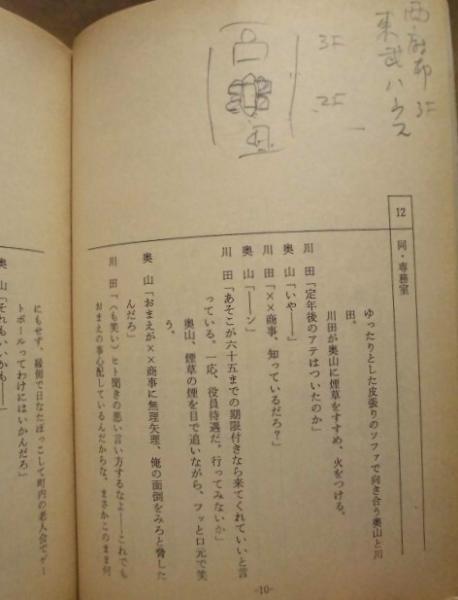 西麻布 3F
東武ハウス
3F
2F
12 同・専務室
ゆったりとした皮張りのソファで向き合う奥山と川
田。
川田が奥山に煙草をすすめ、火をつける。
川 田「定年後のアテはついたのか」
奥 山「いや――」
川 田「××商事、知っているだろ?」
奥 山「――ン」
川 田「あそこが六十五までの期限付きなら来てくれていいと言
っている。一応、役員待遇だ。行ってみないか」
奥山、煙草の煙を目で追いながら、フッと口元で笑
う。
奥 山「おまえが××商事に無理矢理、俺の面倒をみろと脅した
んだろ」
川 田「(へも笑い)ヒト聞きの悪い言い方するなよ――これでも
おまえの事心配しているんだからな。まさかこのまま何
-10-
にもせず、縁側で日なたぼっこして町内の老人会でゲー
トボールってわけにはいかんだろ」
奥 山「それもいいかも――」